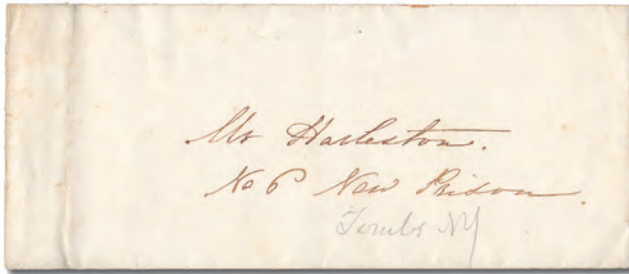 Mr Harleston.
No 6 New Prison.
Tombs NY